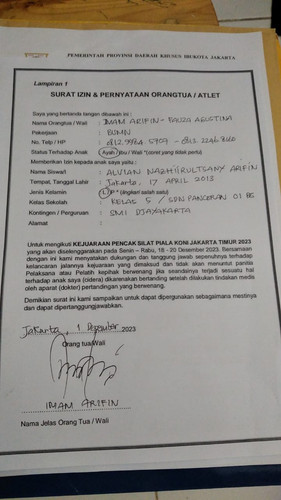 PEMERINTAH PROVINSI DAERAH KHUSUS IBUKOTA JAKARTA
Lampiran 1
SURAT IZIN & PERNYATAAN ORANGTUA / ATLET
Saya yang bertanda tangan dibawah ini :
Nama Orangtua / Wali : IMAM ARIFIN - AGUSTINA
Pekerjaan : BUMN
No. Telp / HP : 0812
Status Terhadap Anak : Ayah / Ibu / Wali *(coret yang tidak perlu)
Memberikan izin kepada anak saya yaitu :
Nama Siswa/i : ALVIAN ARIFIN
Tempat, Tanggal Lahir : Jakarta, 17 APRIL 2013
Jenis Kelamin : L / P * (lingkari salah satu)
Kelas Sekolah : KELAS 5 / SDN PANCORAN 01 PG
Kontingen / Perguruan : SMI DJAYAKARTA
Alamat :
Untuk mengikuti KEJUARAAN PENCAK SILAT PIALA KONI JAKARTA TIMUR 2023
yang akan diselenggarakan pada Senin – Rabu, 18 - 20 Desember 2023. Bersamaan
dengan ini kami menyatakan dukungan dan tanggung jawab sepenuhnya terhadap
kelancaran jalannya kejuaraan yang dimaksud dan tidak akan menuntut panitia
Pelaksana atau Pelatih kepihak berwenang jika seandainya terjadi sesuatu hal
terhadap anak saya (cidera) dikarenakan bertanding setelah dilakukan tindakan medis
oleh aparat (dokter) pertandingan yang berwenang.
Demikian surat ini kami sampaikan untuk dapat dipergunakan sebagaimana mestinya
dan dapat dipertanggungjawabkan.
Jakarta, 1 Desember 2023
Orang tua/Wali
IMAM ARIFIN
Nama Jelas Orang Tua / Wali